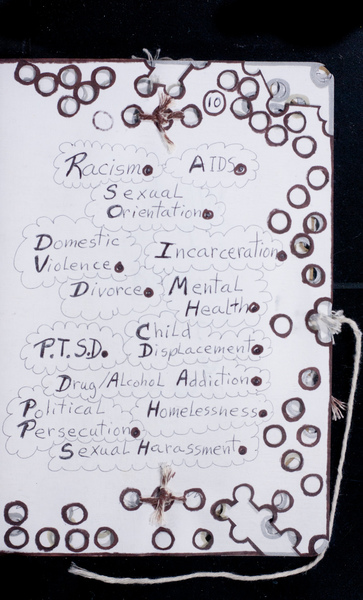 10
Racism. AIDS.
Sexual
Orientation.
Domestic
Violence. Incarceration.
Divorce. Mental
Health.
P.T.S.D. Child
Displacement.
Drug/Alcohol Addiction.
Political
Persecution. Homelessness.
Sexual Harassment.